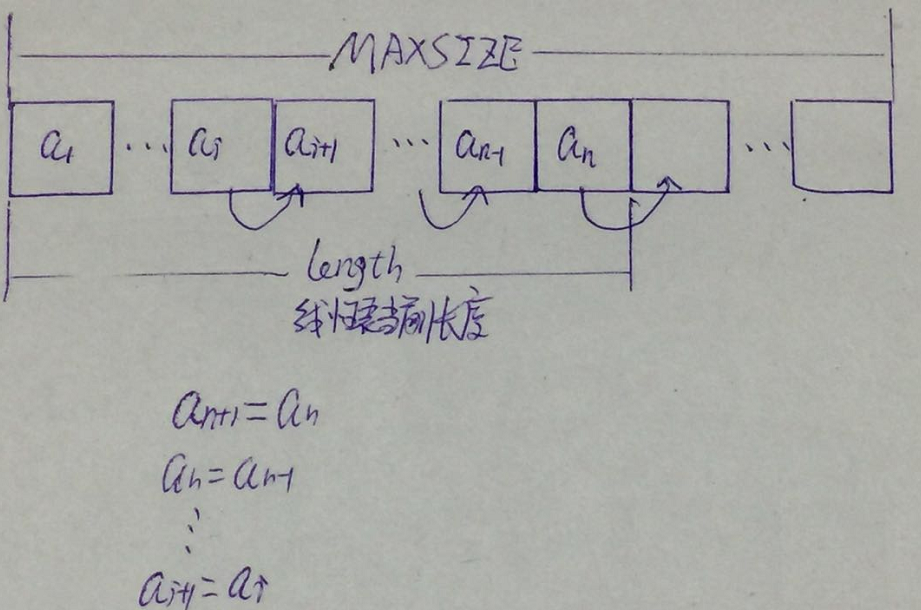 MAXSIZE
a₁ ... aᵢ aᵢ₊₁ ... aₙ₋₁ aₙ ...
length
线性表当前长度
aₙ₊₁=aₙ
aₙ=aₙ₋₁
⋮
aᵢ₊₁=aᵢ